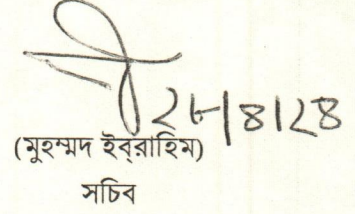 ২৮|৪|২৪
(মুহম্মদ ইব্‌রাহিম)
সচিব